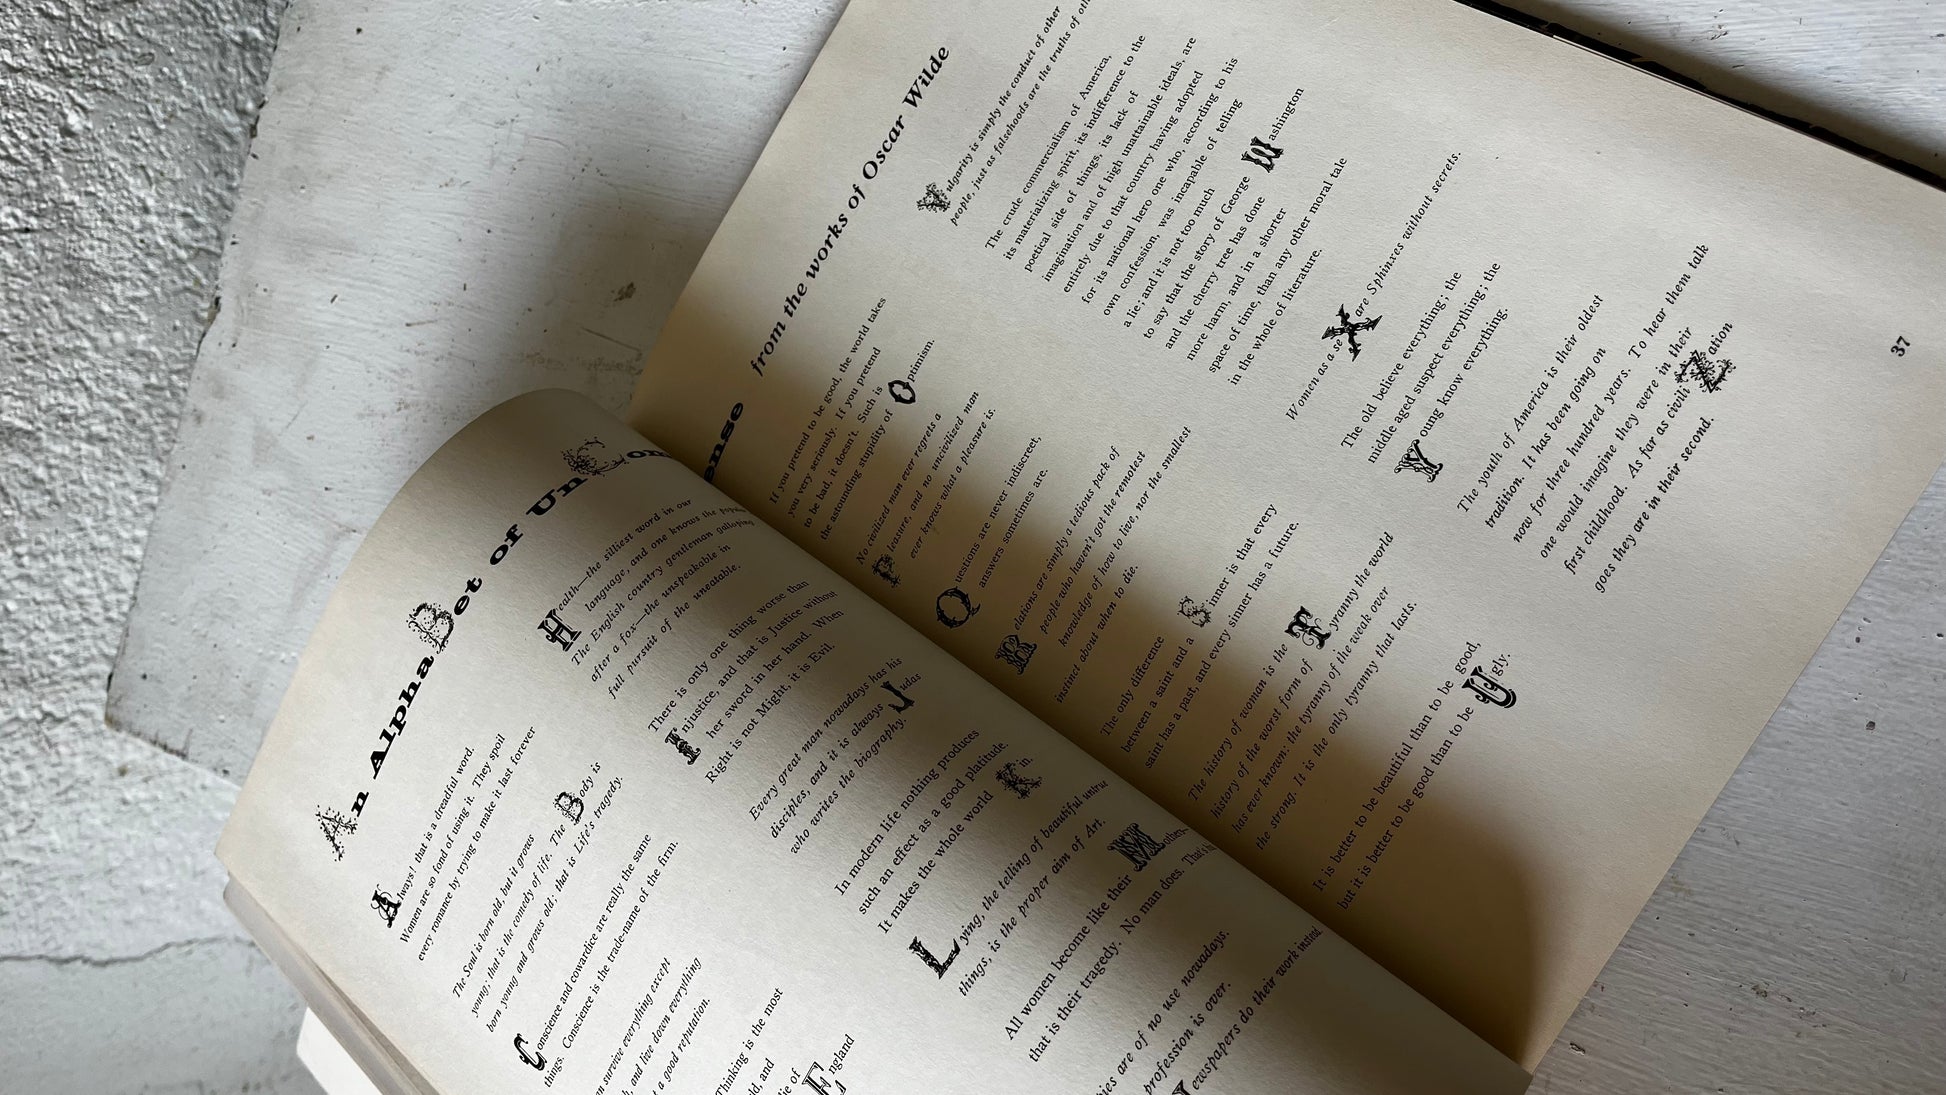 An AlphaBet of UnCom
Always! that is a dreadful word.
Women are so fond of using it. They spoil
every romance by trying to make it last forever
The Soul is born old, but it grows
young; that is the comedy of life. The Body is
born young and grows old; that is Life's tragedy.
Conscience and cowardice are really the same
things. Conscience is the trade-name of the firm.
survive everything except
and live down everything
a good reputation.
Thinking is the most
and
of England
Health—the silliest word in our
language, and one knows the popular
The English country gentleman galloping
after a fox—the unspeakable in
full pursuit of the uneatable.
There is only one thing worse than
Injustice, and that is Justice without
her sword in her hand. When
Right is not Might, it is Evil.
Every great man nowadays has his
disciples, and it is always Judas
who writes the biography.
In modern life nothing produces
such an effect as a good platitude.
It makes the whole world Kin.
Lying, the telling of beautiful untrue
things, is the proper aim of Art.
All women become like their Mothers,
that is their tragedy. No man does. That's his
are of no use nowadays.
profession is over.
Newspapers do their work instead.
ense
from the works of Oscar Wilde
If you pretend to be good, the world takes
you very seriously. If you pretend
to be bad, it doesn't. Such is
the astounding stupidity of Optimism.
No civilized man ever regrets a
Pleasure, and no uncivilized man
ever knows what a pleasure is.
Questions are never indiscreet,
answers sometimes are.
Relations are simply a tedious pack of
people who haven't got the remotest
knowledge of how to live, nor the smallest
instinct about when to die.
The only difference
between a saint and a Sinner is that every
saint has a past, and every sinner has a future.
The history of woman is the
history of the worst form of Tyranny the world
has ever known: the tyranny of the weak over
the strong. It is the only tyranny that lasts.
It is better to be beautiful than to be good,
but it is better to be good than to be Ugly.
Vulgarity is simply the conduct of other
people, just as falsehoods are the truths of
The crude commercialism of America,
its materializing spirit, its indifference to the
poetical side of things, its lack of
imagination and of high unattainable ideals, are
entirely due to that country having adopted
for its national hero one who, according to his
own confession, was incapable of telling
a lie; and it is not too much
to say that the story of George Washington
and the cherry tree has done
more harm, and in a shorter
space of time, than any other moral tale
in the whole of literature.
Women as a seX are Sphinxes without secrets.
The old believe everything; the
middle aged suspect everything; the
Young know everything.
The youth of America is their oldest
tradition. It has been going on
now for three hundred years. To hear them talk
one would imagine they were in their
first childhood. As far as civiliZation
goes they are in their second.
37